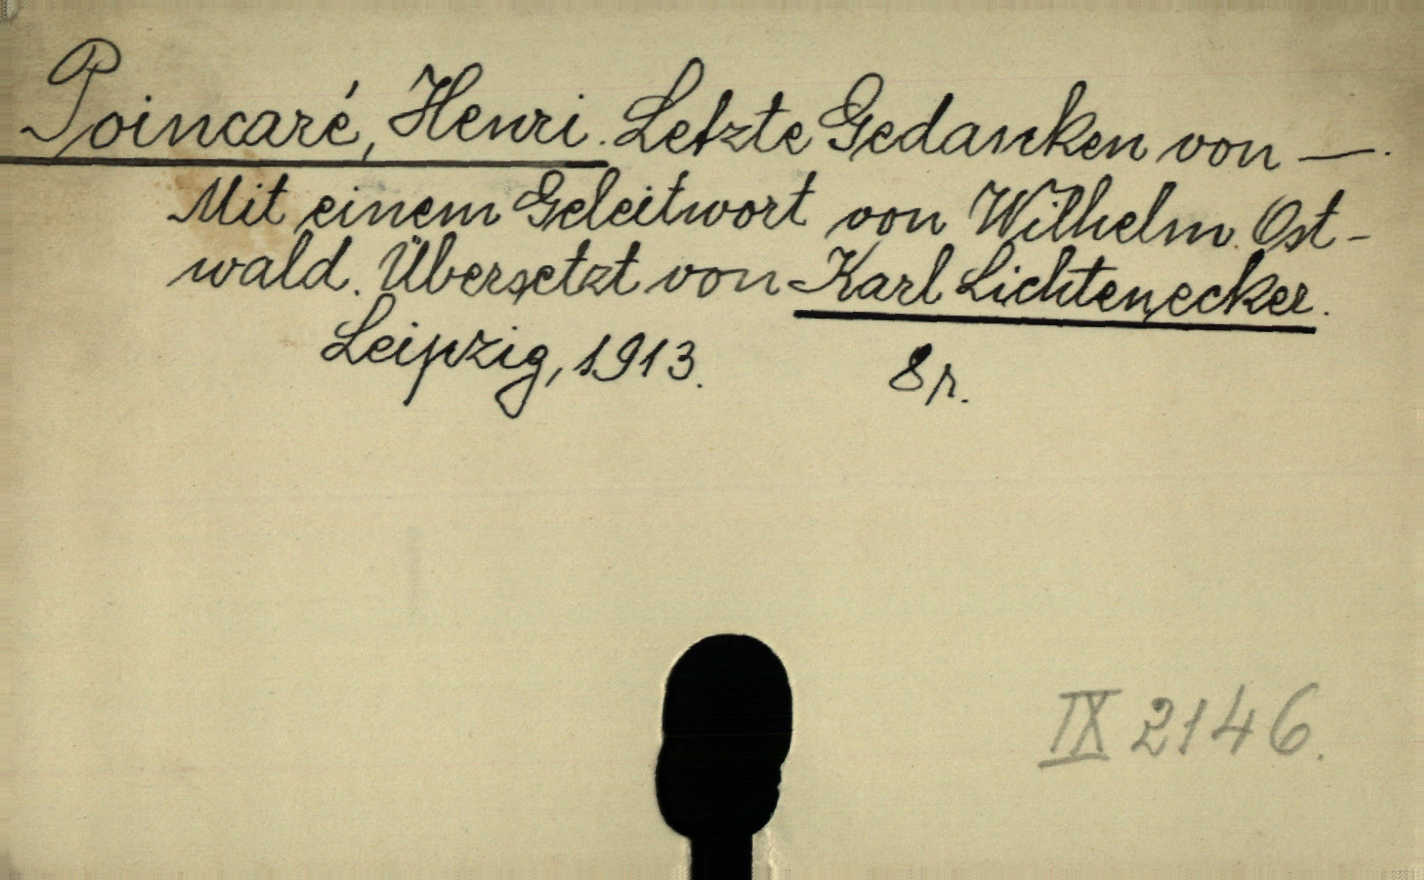 Poincaré, Henri. Letzte Gedanken von —.
Mit einem Geleitwort von Wilhelm Ost-
wald. Übersetzt von Karl Lichtenecker.
Leipzig, 1913. 8r.
IX 2146.